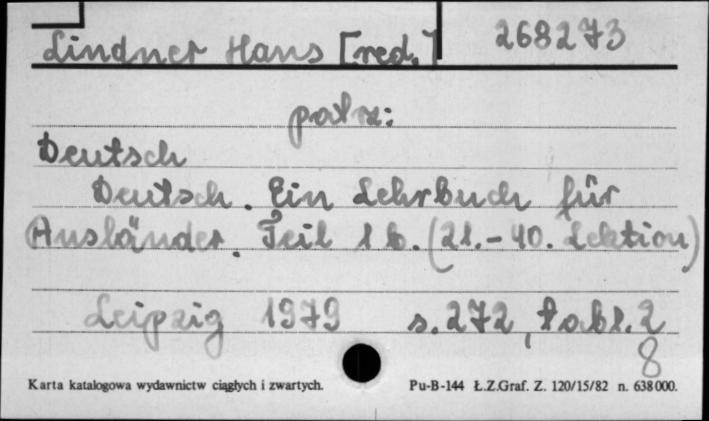 Lindner Hans [red.] 268273
patrz:
Deutsch
Deutsch. Ein Lehrbuch für
Ausländer. Teil 1 b. (21.-40. Lektion)
Leipzig 1979 s. 272, tabl. 2
8
Karta katalogowa wydawnictw ciągłych i zwartych. Pu-B-144 Ł.Z.Graf. Z. 120/15/82 n. 638000.